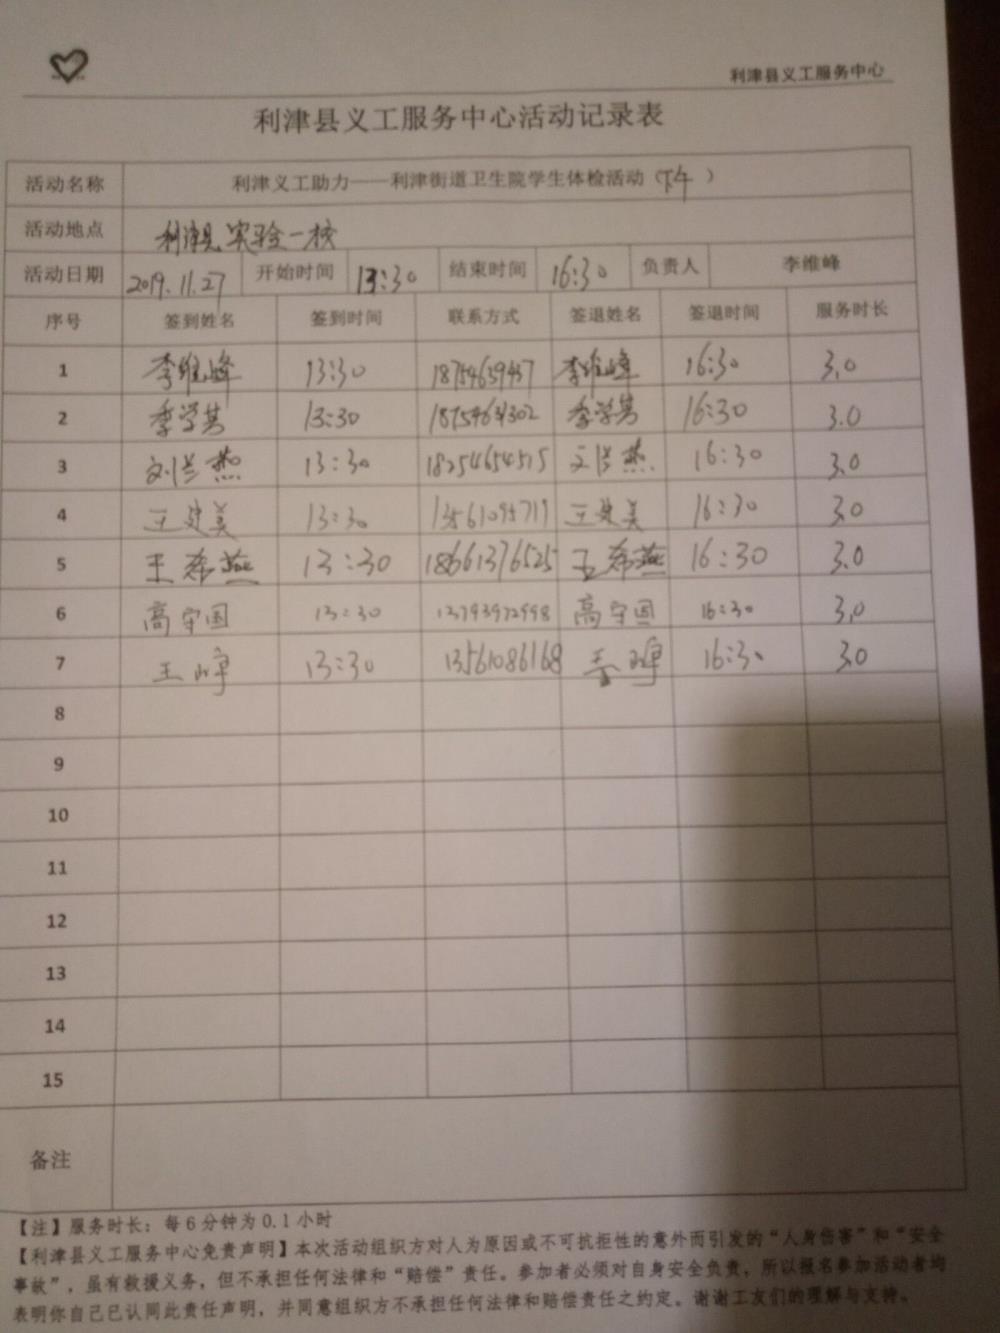 利津县义工服务中心
利津县义工服务中心活动记录表
活动名称 利津义工助力——利津街道卫生院学生体检活动（下午）
活动地点 利津县实验一校
活动日期 2019.11.27 开始时间 13:30 结束时间 16:30 负责人 李维峰
序号 签到姓名 签到时间 联系方式 签退姓名 签退时间 服务时长
1 李维峰 13:30 18754659457 李维峰 16:30 3.0
2 季学英 13:30 季学英 16:30 3.0
3 刘兰燕 13:30 18254654515 刘兰燕 16:30 3.0
4 王建美 13:30 13561095719 王建美 16:30 3.0
5 王希燕 13:30 18661376525 王希燕 16:30 3.0
6 高守国 13:30 13793972998 高守国 16:30 3.0
7 王 13:30 13561086168 16:30 3.0
8
9
10
11
12
13
14
15
备注
【注】服务时长：每6分钟为0.1小时
【利津县义工服务中心免责声明】本次活动组织方对人为原因或不可抗拒性的意外而引发的“人身伤害”和“安全
事故”，虽有救援义务，但不承担任何法律和“赔偿”责任。参加者必须对自身安全负责，所以报名参加活动者均
表明你自己已认同此责任声明，并同意组织方不承担任何法律和赔偿责任之约定。谢谢工友们的理解与支持。